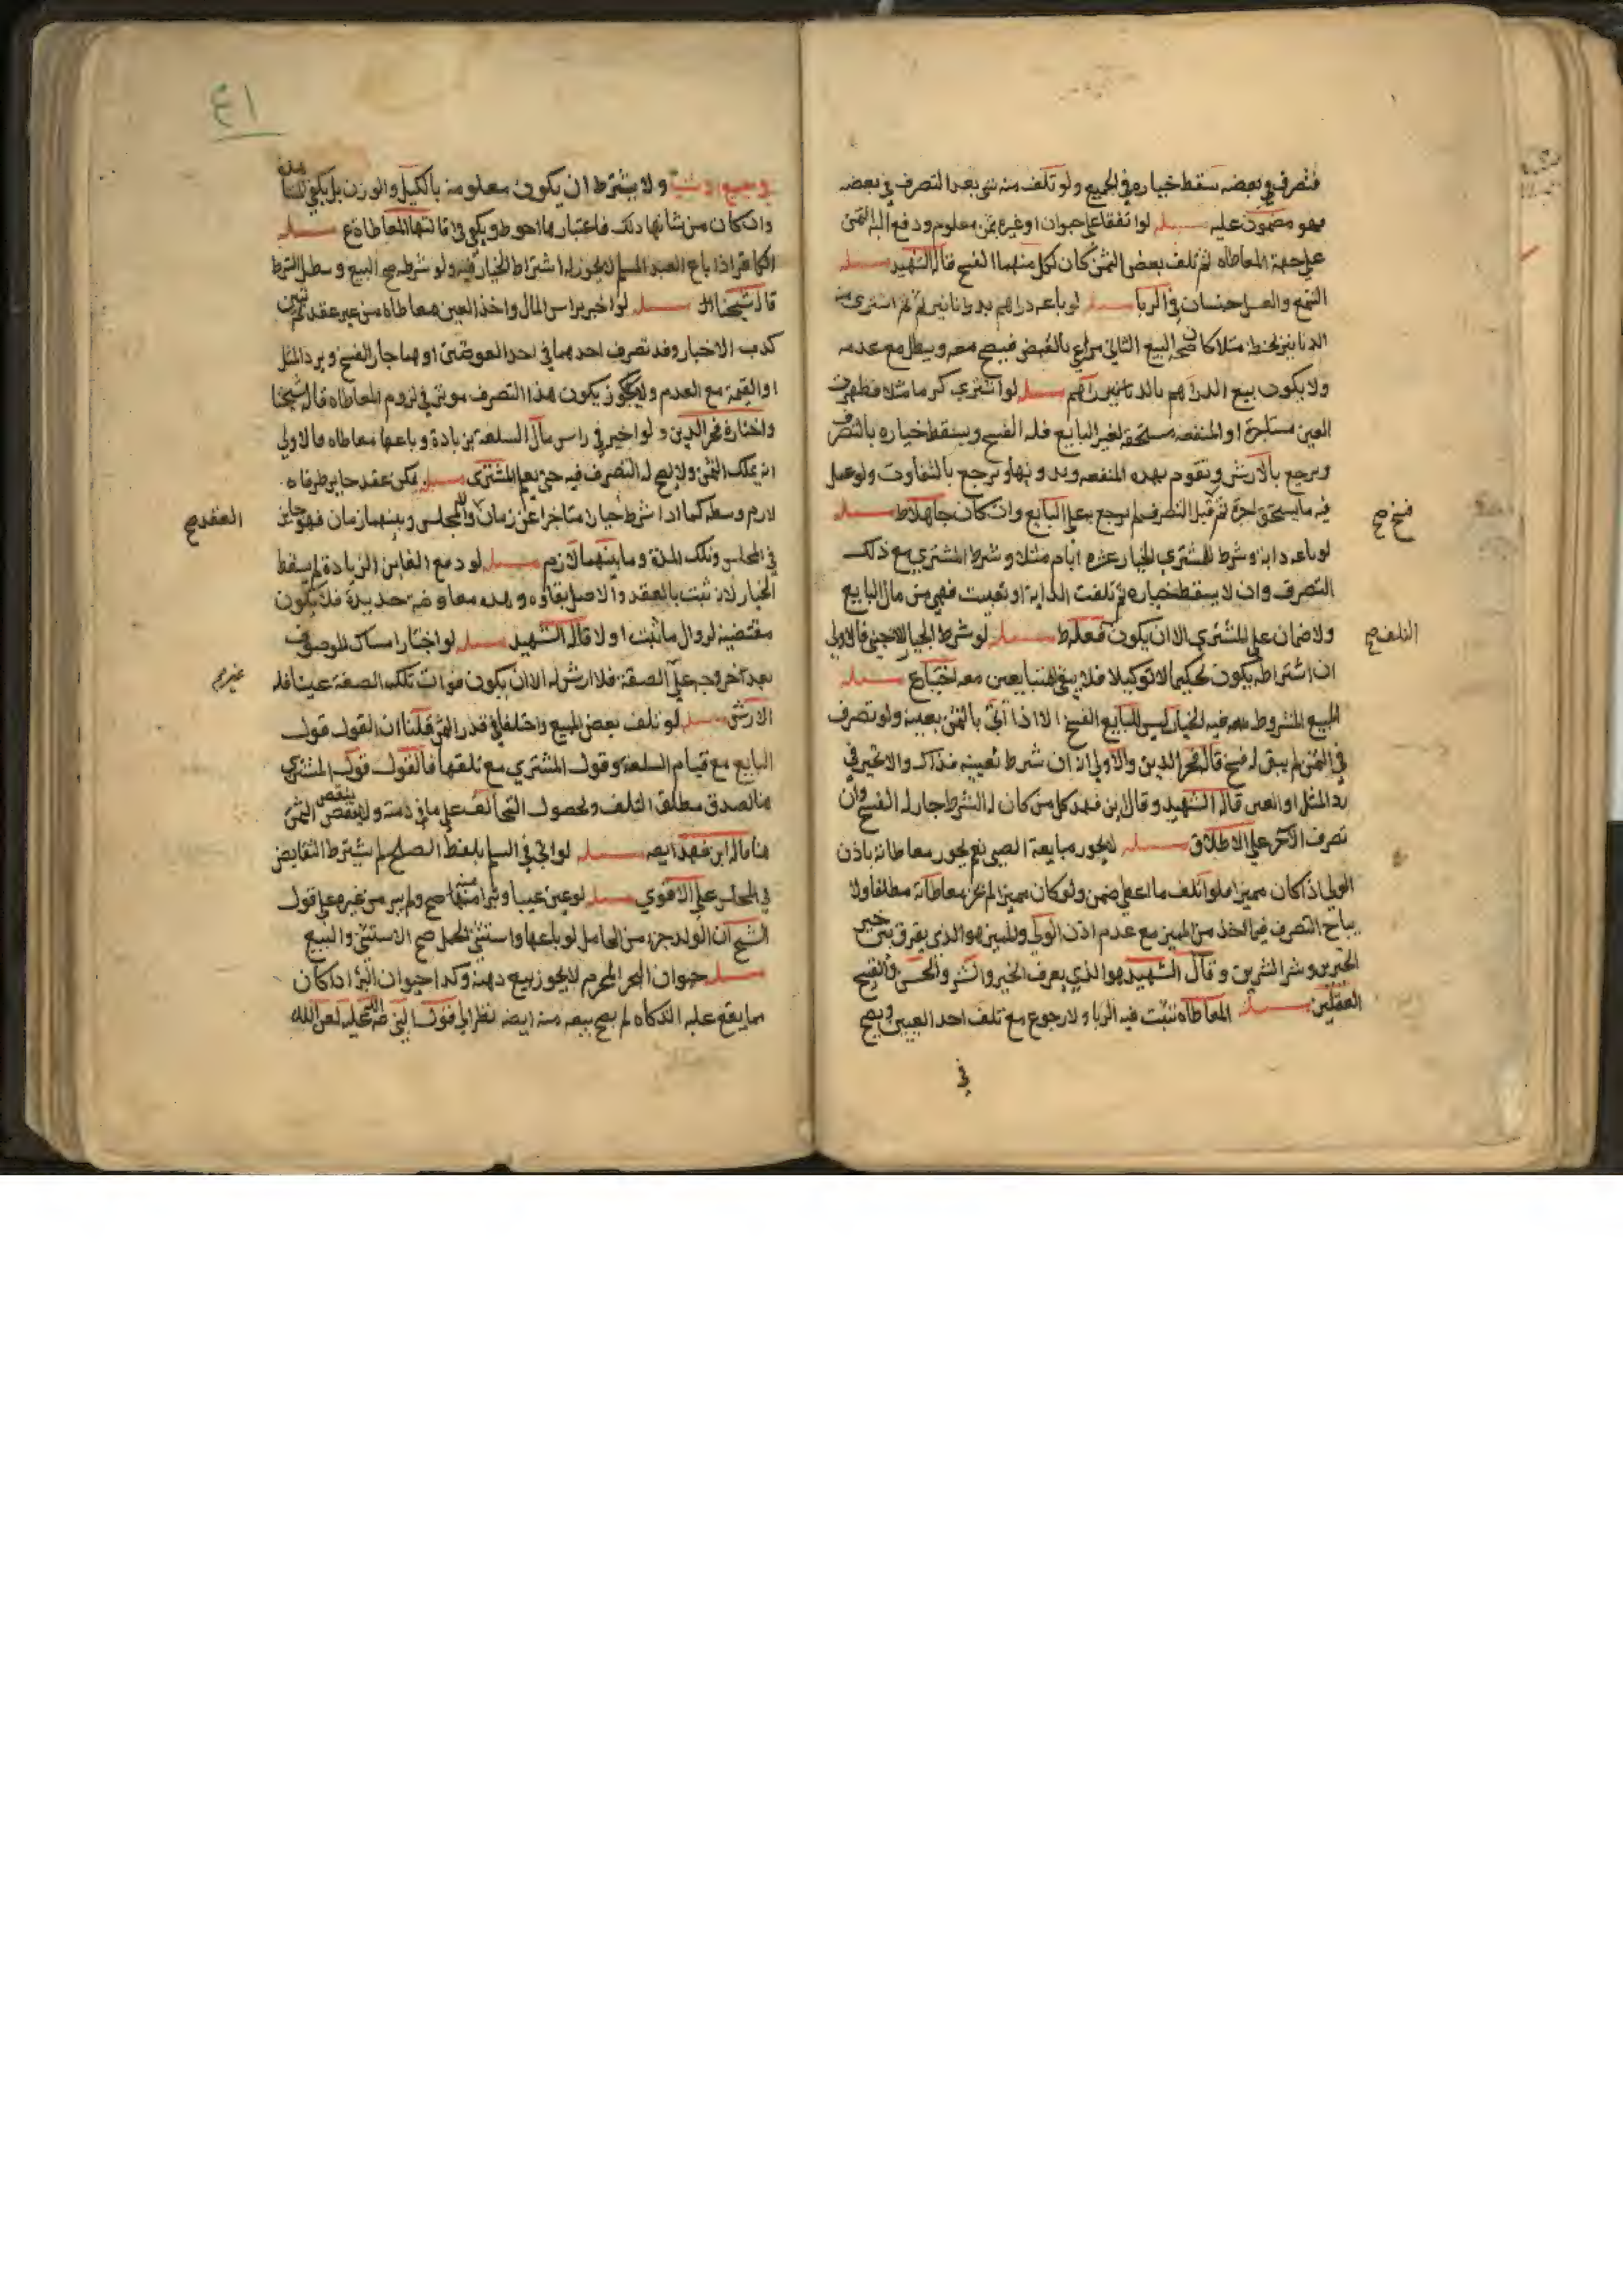 فتصرف في بعضه سقط خياره في الجميع ولو تلف منه شي بعد التصرف في بعضه
فهو مضمون عليه مسله لو اتفقا على حيوان او غيره بثمن معلوم ودفع اليه الثمن
على جهة المعاطاه ثم تلف بعض الثمن كان لكل منهما الفسخ قاله الشهيد مسله
الشمع والعسل جنسان في الربا مسله لو باعه دراهم بدنانير ثم اشترى منه
الدنانير مثلا كان صحه البيع الثاني مراعى بالقبض فيصح معه ويبطل مع عدمه
ولا يكون بيع الدراهم بالدنانير مسله لو اشترى كرما مثلا فظهرت
العين مستاجرة او المنفعه مستحقه لغير البايع فله الفسخ ويسقط خياره بالتصرف
ويرجع بالارش وتقوم بهذه المنفعه وبدونها ويرجع بالتفاوت ولو عمل
فيه ما يستحق اجرة ثم قبل التصرف لم يرجع به على البايع وان كان جاهلا ط مسله
فسخ صح
لو باعه دابة وشرط للمشتري الخيار عشره ايام مثلا وشرط المشتري مع ذلك
التصرف وان لا يسقط خياره ثم تلفت الدابة او تعيبت فهي من مال البايع
ولا ضمان على المشتري الا ان يكون بفعله ط مسله لو شرط الخيار لاجنبي فالاولى
التلف صح
ان اشتراطه يكون تحكيما لا توكيلا فلا يبقى للمتبايعين معه خيار ع مسله
المبيع المشروط فيه الخيار ليس للبايع الفسخ الا اذا اتى بالثمن بعينه ولو تصرف
في الثمن لم يبق له فسخ قاله فخر الدين والاولى انه ان شرط تعيينه فذاك والا تخير في
رد المثل او العين قاله الشهيد وقال ابن فهد كل من كان له الشرط جاز له الفسخ وان
تصرف الاخر على الاطلاق مسله لا يجوز مبايعة الصبي نعم يجوز معاطاته باذن
الولي اذا كان مميزا فلو اتلف ما اعطي ضمن ولو كان مميزا لم تجز معاطاته مطلقا ولا
يباح التصرف فيما اخذ من المميز مع عدم اذن الولي والمميز هو الذي يفرق بين خير
الخيرين وشر الشرين وقال الشهيد هو الذي يعرف الخير والشر والحسن والقبيح
العقليين مسله المعاطاه تثبت فيه الربا ولا رجوع مع تلف احد العينين ويصح
في
٤١
ولا يشترط ان يكون معلومة بالكيل والوزن بل يكفي
وان كان من شانها ذلك فاعتبارها احوط ويكفي في اقالتها المعاطاة ع مسله
الكافر اذا باع العبد المسلم لا يجوز له اشتراط الخيار فيه ولو شرط صح البيع وبطل الشرط
قاله شيخنا مسله لو اخبر براس المال واخذ العين معاطاه من غير عقد ثم تبين
كذب الاخبار وقد تصرف احدهما في احد العوضين او هما جاز الفسخ ويرد المثل
او القيمة مع العدم ولا يجوز يكون هذا التصرف موثر في لزوم المعاطاه قاله شيخنا
واختاره فخر الدين ولو اخبر في راس مال السلعة بزيادة وباعها معاطاه فالاولى
انه يملك الثمن ولا يصح له التصرف فيه حتى يعلم المشتري مسله يمكن عقد جايز طرفاه
لازم وسطه كما اذا شرط خيارا متاخرا عن زمان المجلس وبينهما زمان فهو جايز
العقد صح
في المجلس وتلك المدة وما بينهما لازم مسله لو دفع الغابن الزيادة لم يسقط
الخيار لانه ثبت بالعقد والاصل بقاؤه وهذه معاوضة جديدة فلا يكون
مقتضية لزوال ما ثبت اولا قاله الشهيد مسله لو اختار امساك الموصوف
بعد خروجه على الصفة فلا ارش له الا ان يكون فوات تلك الصفة عيبا فله
غير صح
الارش مسله لو تلف بعض المبيع واختلفا في قدر الثمن قلنا ان القول قول
البايع مع قيام السلعة وقول المشتري مع تلفها فالقول قول المشتري
هنا لصدق مطلق التلف ولحصول التحالف على ما في ذمته ولا ينقص الثمن
هنا قاله ابن فهد ايضه مسله لو اتي في السلم بلفظ الصلح لم يشترط التقابض
في المجلس على الاقوي مسله لو عين عيبا وتبرا منها صح ولم يبر من غيره على قول
الشيخ ان الولد جزء من الحامل لو باعها واستثنى الحمل صح الاستثنى والبيع
مسله حيوان البحر المحرم لا يجوز بيع دهنه وكذا حيوان البر اذا كان
مما يقع عليه الذكاه لم يصح بيعه منه ايضه نظر الي قول النبي صلى الله عليه لعن الله